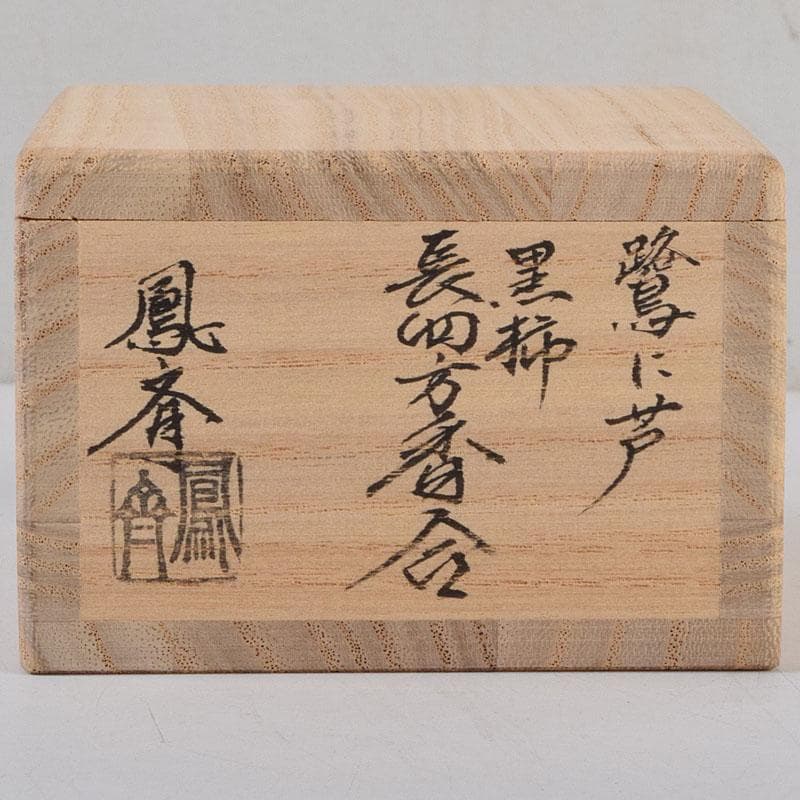 鷺に芦
黒柿
長四方香合
鳳斎
鳳斎